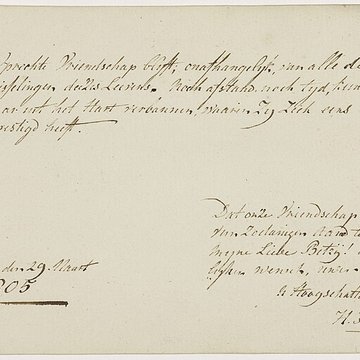 oprechte Vriendschap blijft, onafhangelijk, van alle de
isselingen deezes Leevens. Noch afstand noch tijd, kun
uit het Hart verbannen, waarin Zij Zich eens
vestigd heeft.
Dat onze Vriendschap
van aard
mijne Liebe Betzij!
wensch, uwer
Hoogschatt
den 29. Maart
805
H.